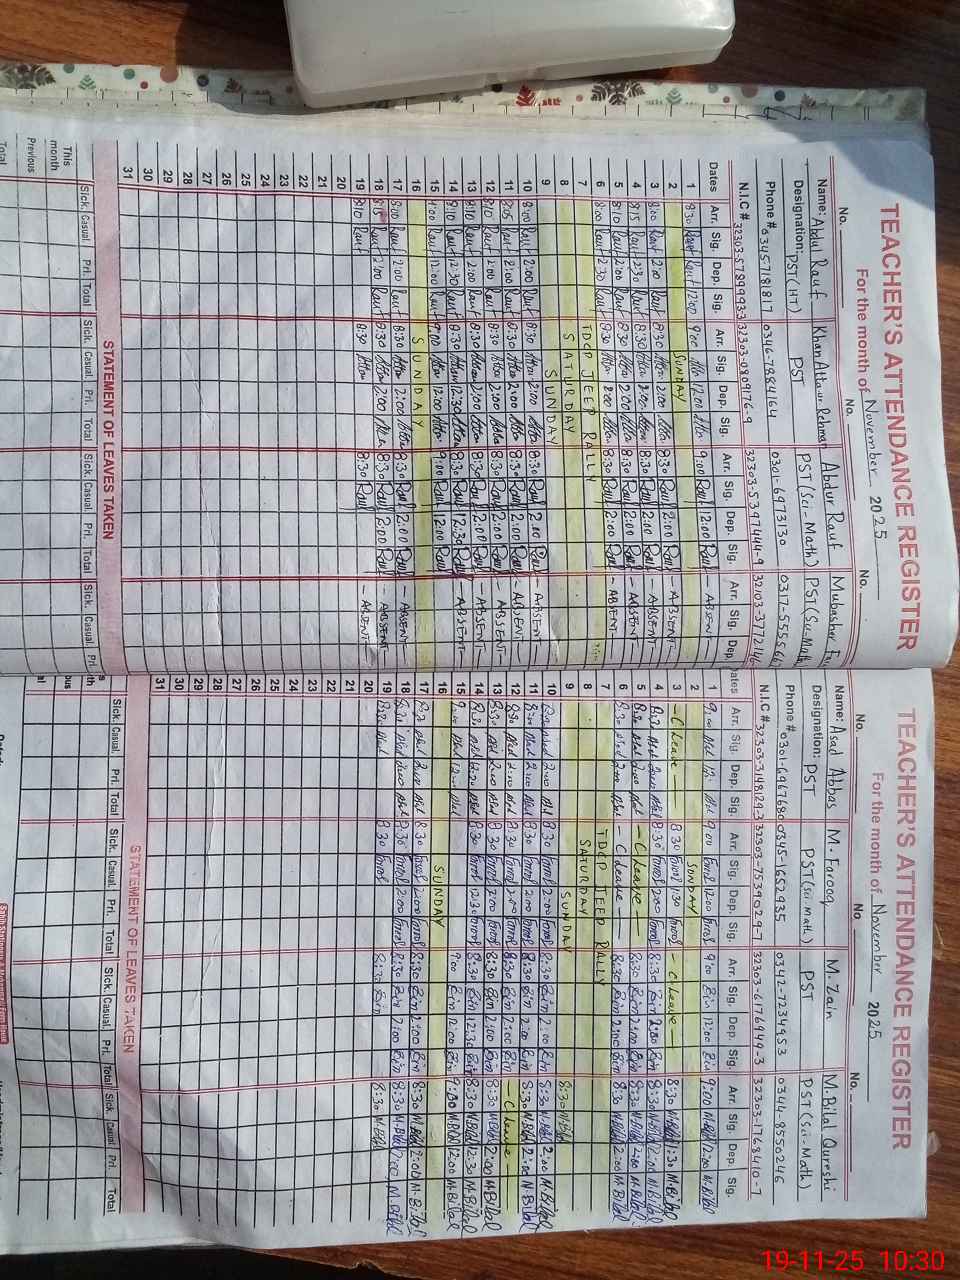 TEACHER'S ATTENDANCE REGISTER
For the month of November 2025
No. No. No. No.
Name: Abdul Rauf Khan Attaur Rehman Abdur Rauf Mubashar
Designation: PST (HT) PST PST (Sci-Math) PST (Sci-Math)
Phone # 03457181817 0346-7884164 0301-6973130 0317-5555
N.I.C # 32303-5789993-3 32303-0809176-9 32303-5397444-9 32103-3772146
Dates Arr. Sig. Dep. Sig. Arr. Sig. Dep. Sig. Arr. Sig. Dep. Sig. Arr. Sig. Dep.
1 8:30 Rauf 12:00 9:00 12:00 9:00 Rauf 12:00 Rauf - ABSENT -
2 SUNDAY
3 8:00 Rauf 2:00 Rauf 8:30 2:00 8:30 Rauf 2:00 Rauf - ABSENT -
4 8:15 Rauf 2:30 Rauf 8:30 2:00 8:30 Rauf 2:00 Rauf - ABSENT -
5 8:10 Rauf 2:00 Rauf 8:30 2:00 8:30 Rauf 2:00 Rauf - ABSENT -
6 8:00 Rauf 2:30 Rauf 8:30 2:00 8:30 Rauf 2:00 Rauf - ABSENT -
7 TDCP JEEP RALLY
8 SATURDAY
9 SUNDAY
10 8:00 Rauf 2:00 Rauf 8:30 2:00 8:30 Rauf 2:00 Rauf - ABSENT -
11 8:05 Rauf 2:00 Rauf 8:30 2:00 8:30 Rauf 2:00 Rauf - ABSENT -
12 8:10 Rauf 2:00 Rauf 8:30 2:00 8:30 Rauf 2:00 Rauf - ABSENT -
13 8:10 Rauf 2:00 Rauf 8:30 2:00 8:30 Rauf 2:00 Rauf - ABSENT -
14 8:10 Rauf 12:30 Rauf 8:30 12:30 8:30 Rauf 12:30 Rauf - ABSENT -
15 9:00 Rauf 12:00 Rauf 9:00 12:00 9:00 Rauf 12:00 Rauf - ABSENT -
16 SUNDAY
17 8:00 Rauf 2:00 Rauf 8:30 2:00 8:30 Rauf 2:00 Rauf - ABSENT -
18 8:15 Rauf 2:00 Rauf 8:30 2:00 8:30 Rauf 2:00 Rauf - ABSENT -
19 8:10 Rauf 8:30 8:30 Rauf - ABSENT -
20
21
22
23
24
25
26
27
28
29
30
31
STATEMENT OF LEAVES TAKEN
Sick. Casual. Pri. Total Sick. Casual. Pri. Total Sick. Casual. Pri. Total Sick. Casual. Pri
This month
Previous
Total
TEACHER'S ATTENDANCE REGISTER
For the month of November 2025
No. No. No.
Name: Asad Abbas M. Farooq M. Zain M. Bilal Qureshi
Designation: PST PST (Sci-Math) PST PST (Sci-Math)
Phone # 0301-6967680 0345-1652935 0342-7234953 0344-8550246
N.I.C # 32303-3148129-3 32303-7539029-7 32303-6176949-3 32303-1768410-7
Dates Arr. Sig. Dep. Sig. Arr. Sig. Dep. Sig. Arr. Sig. Dep. Sig. Arr. Sig. Dep. Sig.
1 9:00 12: 9:00 12:00 9:00 12:00 9:00 M.Bilal 12:00 M.Bilal
2 SUNDAY
3 - C Leave - 8:30 1:30 - C Leave - 8:30 M.Bilal 1:30 M.Bilal
4 2:00 8:30 2:00 8:30 2:00 8:30 M.Bilal 2:00 M.Bilal
5 8:30 2:00 - C Leave - 8:30 2:00 8:30 M.Bilal 2:00 M.Bilal
6 8:30 2:00 - C Leave - 8:30 2:00 8:30 M.Bilal 2:00 M.Bilal
7 TDCP JEEP RALLY
8 SATURDAY
9 SUNDAY 8:30 M.Bilal
10 2:00 8:30 2:00 8:30 2:00 8:30 M.Bilal 2:00 M.Bilal
11 8:00 2:00 8:30 2:00 8:30 2:00 8:30 M.Bilal 2:00 M.Bilal
12 8:30 2:00 8:30 2:00 8:30 2:00 - C Leave -
13 8:30 2:00 8:30 2:00 8:30 2:00 8:30 M.Bilal 2:00 M.Bilal
14 8:30 12:30 8:30 12:30 8:30 12:30 8:30 M.Bilal 12:30 M.Bilal
15 9:00 12:00 9:00 12:00 9:00 M.Bilal 12:00 M.Bilal
16 SUNDAY
17 2:00 8:30 2:00 8:30 2:00 8:30 M.Bilal 2:00 M.Bilal
18 8:30 2:00 8:30 2:00 8:30 2:00 8:30 M.Bilal 2:00 M.Bilal
19 8:30 8:30 8:30 8:30 M.Bilal
20
21
22
23
24
25
26
27
28
29
30
31
STATEMENT OF LEAVES TAKEN
Sick. Casual. Pri. Total Sick. Casual. Pri. Total Sick. Casual. Pri. Total Sick. Casual Pri. Total
19-11-25 10:30